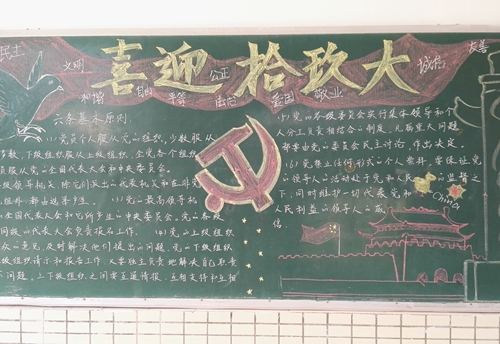 民主
文明
和谐
自由
平等
公正
法治
爱国
敬业
诚信
友善
喜迎拾玖大
六条基本原则
(1)党员个人服从党的组织,少数服从
多数,下级组织服从上级组织,全党各个组织
员服从党的全国代表大会和中央委员会。
级领导机关,除它们派出的代表机关和在非党
组外,都由选举产生。(3)党的最高领导机
全国代表大会和它所产生的中央委员会。党的各级
同级的代表大会负责报告工作。(4)党的上级组织
众的意见,及时解决他们提出的问题。党的下级组织
级组织请示和报告工作,又要独立负责地解决自己职责
问题。上下级组织之间要互通情报、互相支持和互相
(5)党的各级委员会实行集体领导和个
人分工负责相结合的制度。凡属重大问题
都要由党的委员会民主讨论,作出决定
(6)党禁止任何形式的个人崇拜。要保证党
的领导人的活动处于党和人民的监督之
下,同时维护一切代表党和
人民利益的领导人的威
信。
China